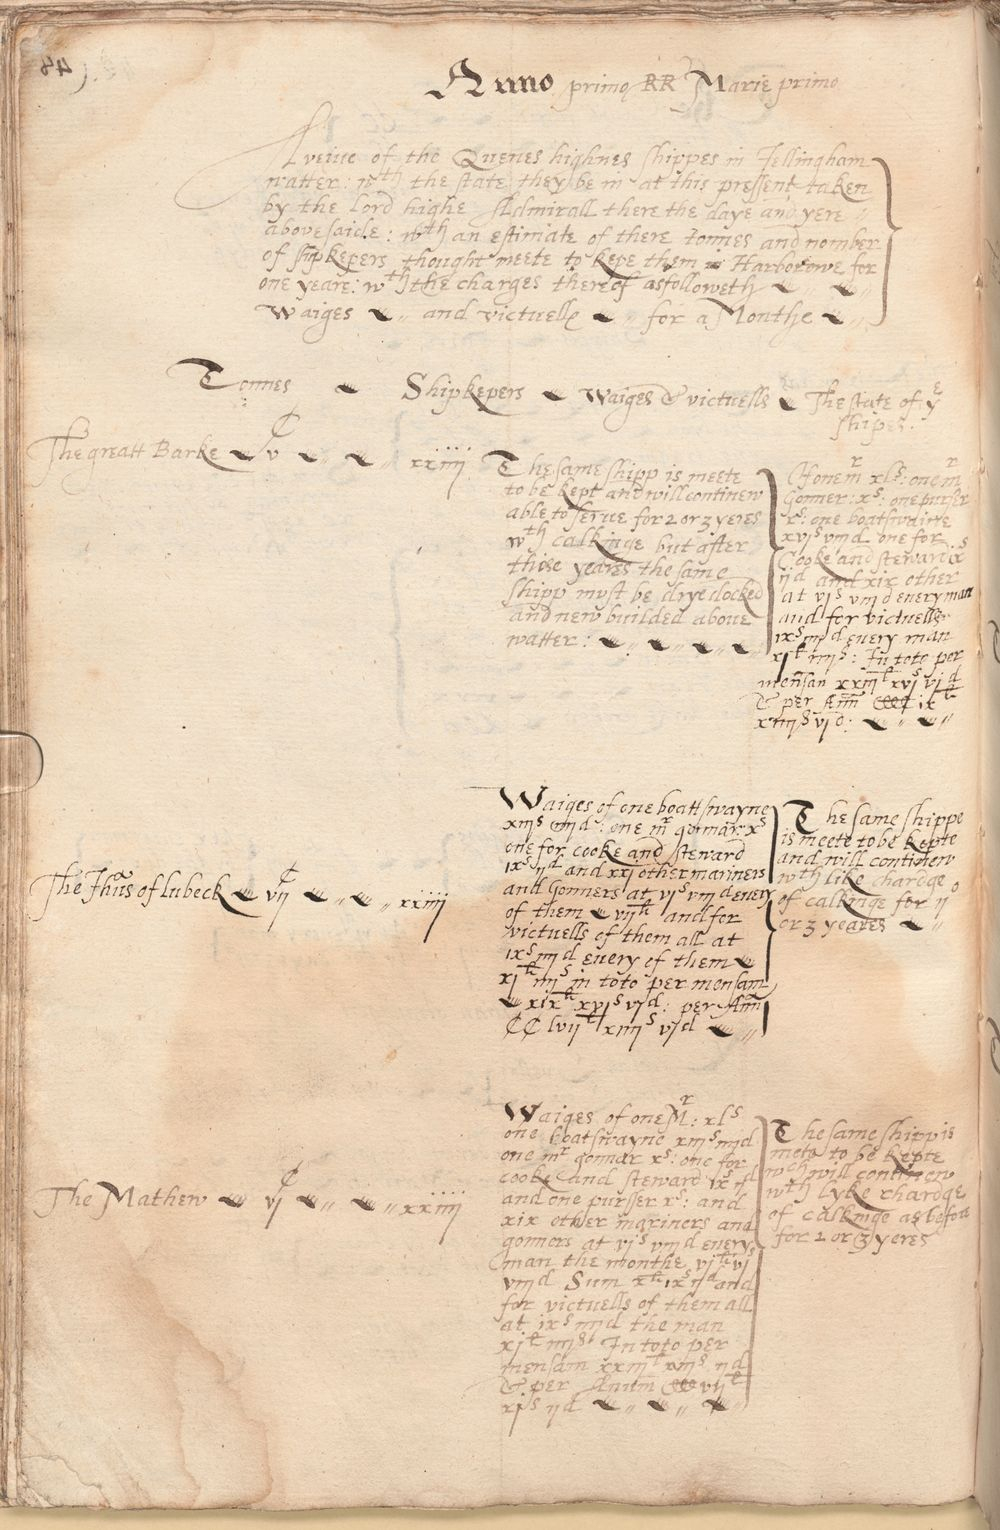 Anno primo RR Marie primo
A veiue of the Quenes highnes shippes in Jellingham
watter: wth the state they be in at this pressent taken
by the lord highe Admirall there the daye and yere
abovesaide: wth an estimate of there tonnes and nomber
of shipkepers thought meete to kepe them in Harborowe for
one yeare: wth the charges thereof as followeth
Waiges and victuells for a Monthe
Tonnes Shipkepers Waiges & victuells The state of ye
shipes.
The greatt Barke vC xxiiij
The same shipp is meete
to be kept and will continew
able to serve for 2 or 3 yeres
wth calkinge but after
those yeares the same
shipp must be drye docked
and new builded above
watter:
Of one mr xls: one mr
Gonner: xs: one purser
xs: one boatswaine
xvjs viijd one for
Cooke and steward ixs
ijd and xix other
at vjs viijd every man
and for victuells
ixs iiijd every man
xjli iiijs: In toto per
mensan xxiijli xvjs vjd
& per Ann CCC ixli
xiiijs vjd:
The Jhus of lubeck viiC xxiiij
Waiges of one boattswayne
xiijs iiijd: one mr gonnar: xs
one for cooke and steward
ixs ijd and xxj other mariners
and Gonners at vjs viijd every
of them viili and for
victuells of them all at
ixs iiijd every of them
xjli iiijs in toto per mensam
xixli xvjs vjd: per Ann
CC lviili xiiijs vjd
The same shippe
is meete to be kepte
and will continew
wth like chardge
of calkinge for ij
or 3 yeares
The Mathew vjC xxiiij
Waiges of one Mr: xls
one boatswayne xiijs iiijd
one mr gonnar xs: one for
cooke and steward ixs ijd
and one purser xs: and
xix other mariners and
gonners at vjs viijd every
man the monthe vjli vjs
viijd Sum xli ixs ijd and
for victuells of them all
at ixs iiijd the man
xjli iiijs In toto per
mensam xxiijli xiijs ijd
& per Annum CCC viili
xjs ijd
The same shipp is
mete to be kepte
wch will continew
wth lyke chardge
of calkinge as before
for 2 or 3 yeres